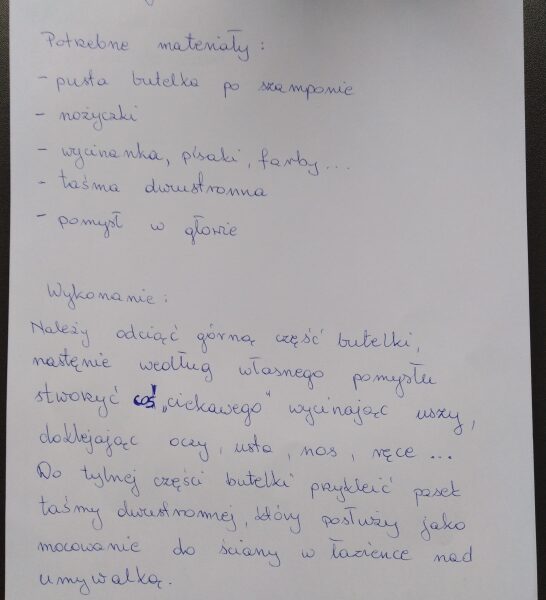 Potrzebne materiały:
- pusta butelka po szamponie
- nożyczki
- wycinanka, pisaki, farby...
- taśma dwustronna
- pomysł w głowie
Wykonanie:
Należy odciąć górną część butelki,
następnie według własnego pomysłu
stworzyć coś „ciekawego" wycinając uszy,
doklejając oczy, usta, nos, ręce ...
Do tylnej części butelki przykleić pasek
taśmy dwustronnej, który posłuży jako
mocowanie do ściany w łazience nad
umywalką.